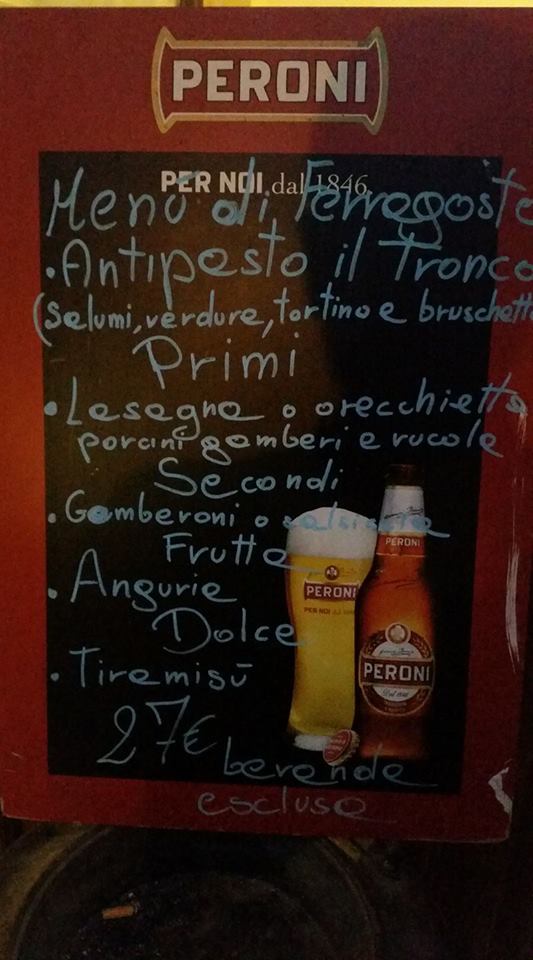 PERONI
PER NOI dal 1846
Menú di Ferragosto
• Antipasto il Tronco
(Salumi, verdure, tortino e bruschette
Primi
• Lasagna o orecchiette
porcini gamberi e rucola
Secondi
• Gamberoni o salsiccia
Frutta
• Anguria
Dolce
• Tiramisū
27€
bevande
escluse
PERONI
PERONI
PER NOI
PERONI